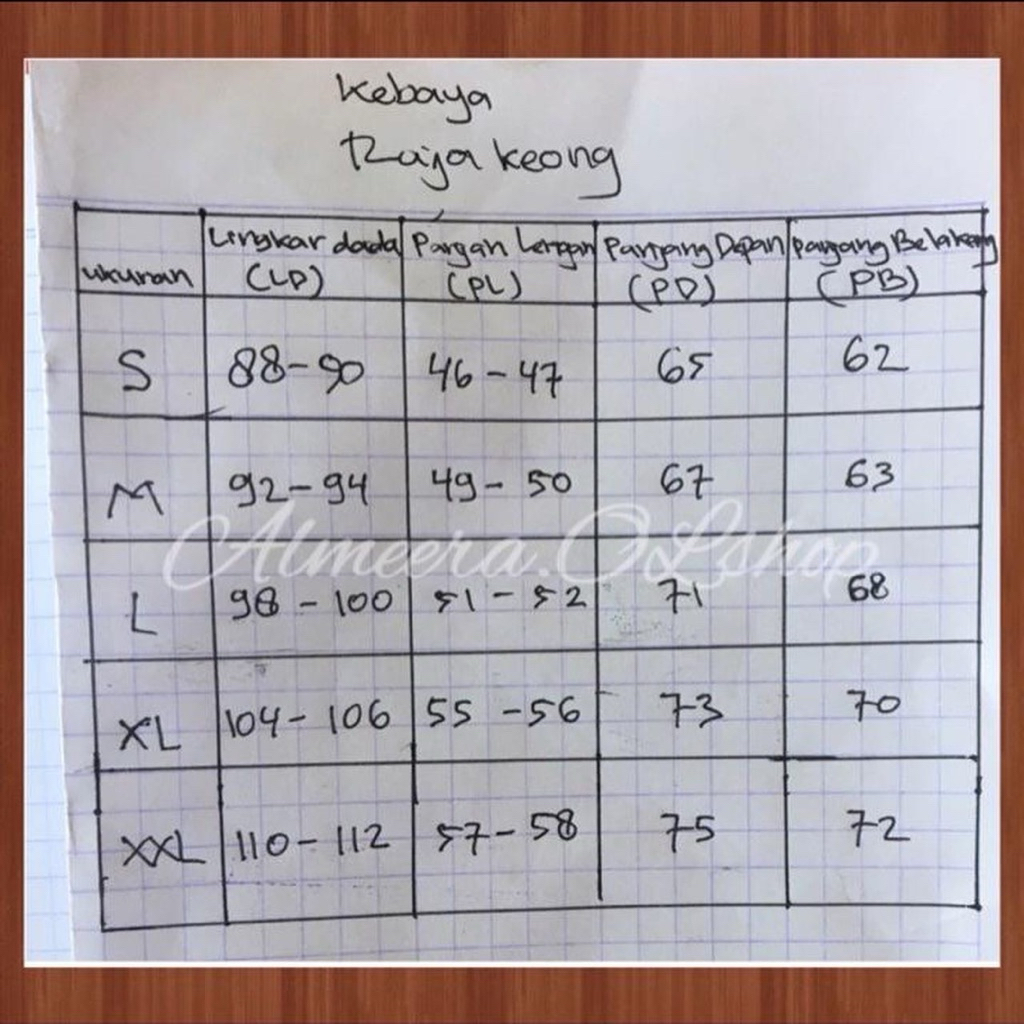 Kebaya
Raja Keong
ukuran Lingkar dada (LD) Pangan Lengan (PL) Panjang Depan (PD) panjang Belakang (PB)
S 88-90 46-47 65 62
M 92-94 49-50 67 63
L 98-100 51-52 71 68
XL 104-106 55-56 73 70
XXL 110-112 57-58 75 72
Almeera.OLshop